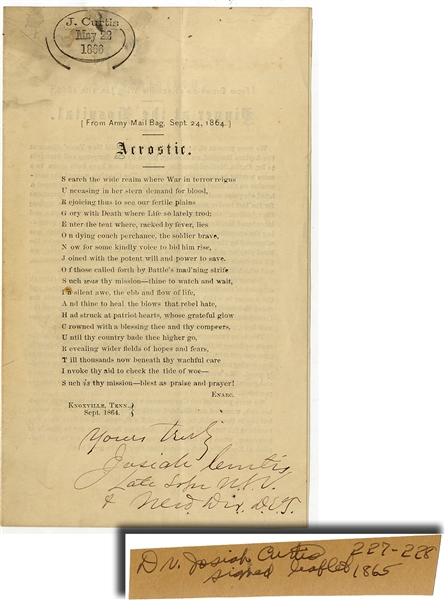 J. Curtis
May 22
1866
[From Army Mail Bag, Sept. 24, 1864.]
Acrostic.
Search the wide realm where War in terror reigns
Unceasing in her stern demand for blood,
Rejoicing thus to see our fertile plains
Gory with Death where Life so lately trod;
Enter the tent where, racked by fever, lies
On dying couch perchance, the soldier brave,
Now for some kindly voice to bid him rise,
Joined with the potent will and power to save.
Of those called forth by Battle's mad'ning strife
Such was thy mission—thine to watch and wait,
In silent awe, the ebb and flow of life,
And thine to heal the blows that rebel hate,
Had struck at patriot hearts, whose grateful glow
Crowned with a blessing thee and thy compeers,
Until thy country bade thee higher go,
Revealing wider fields of hopes and fears,
Till thousands now beneath thy wachful care
Invoke thy aid to check the tide of woe—
Such is thy mission—blest as praise and prayer!
Enarc.
Knoxville, Tenn.,
Sept. 1864.
Yours truly
Josiah Curtis,
Late
& Med. Dir.
Dr. Josiah Curtis 227-228
signed leaflet 1865